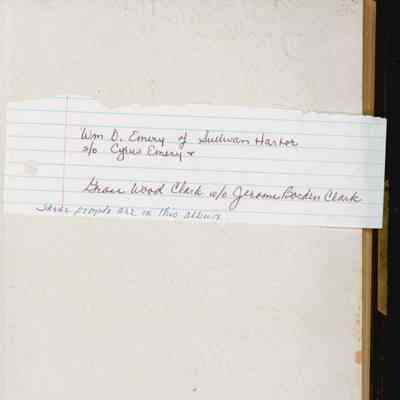 Wm D. Emery of Sullivan Harbor
s/o Cyrus Emery &
Grace Wood Clark w/o Jerome Borden Clark
These people are in this album.